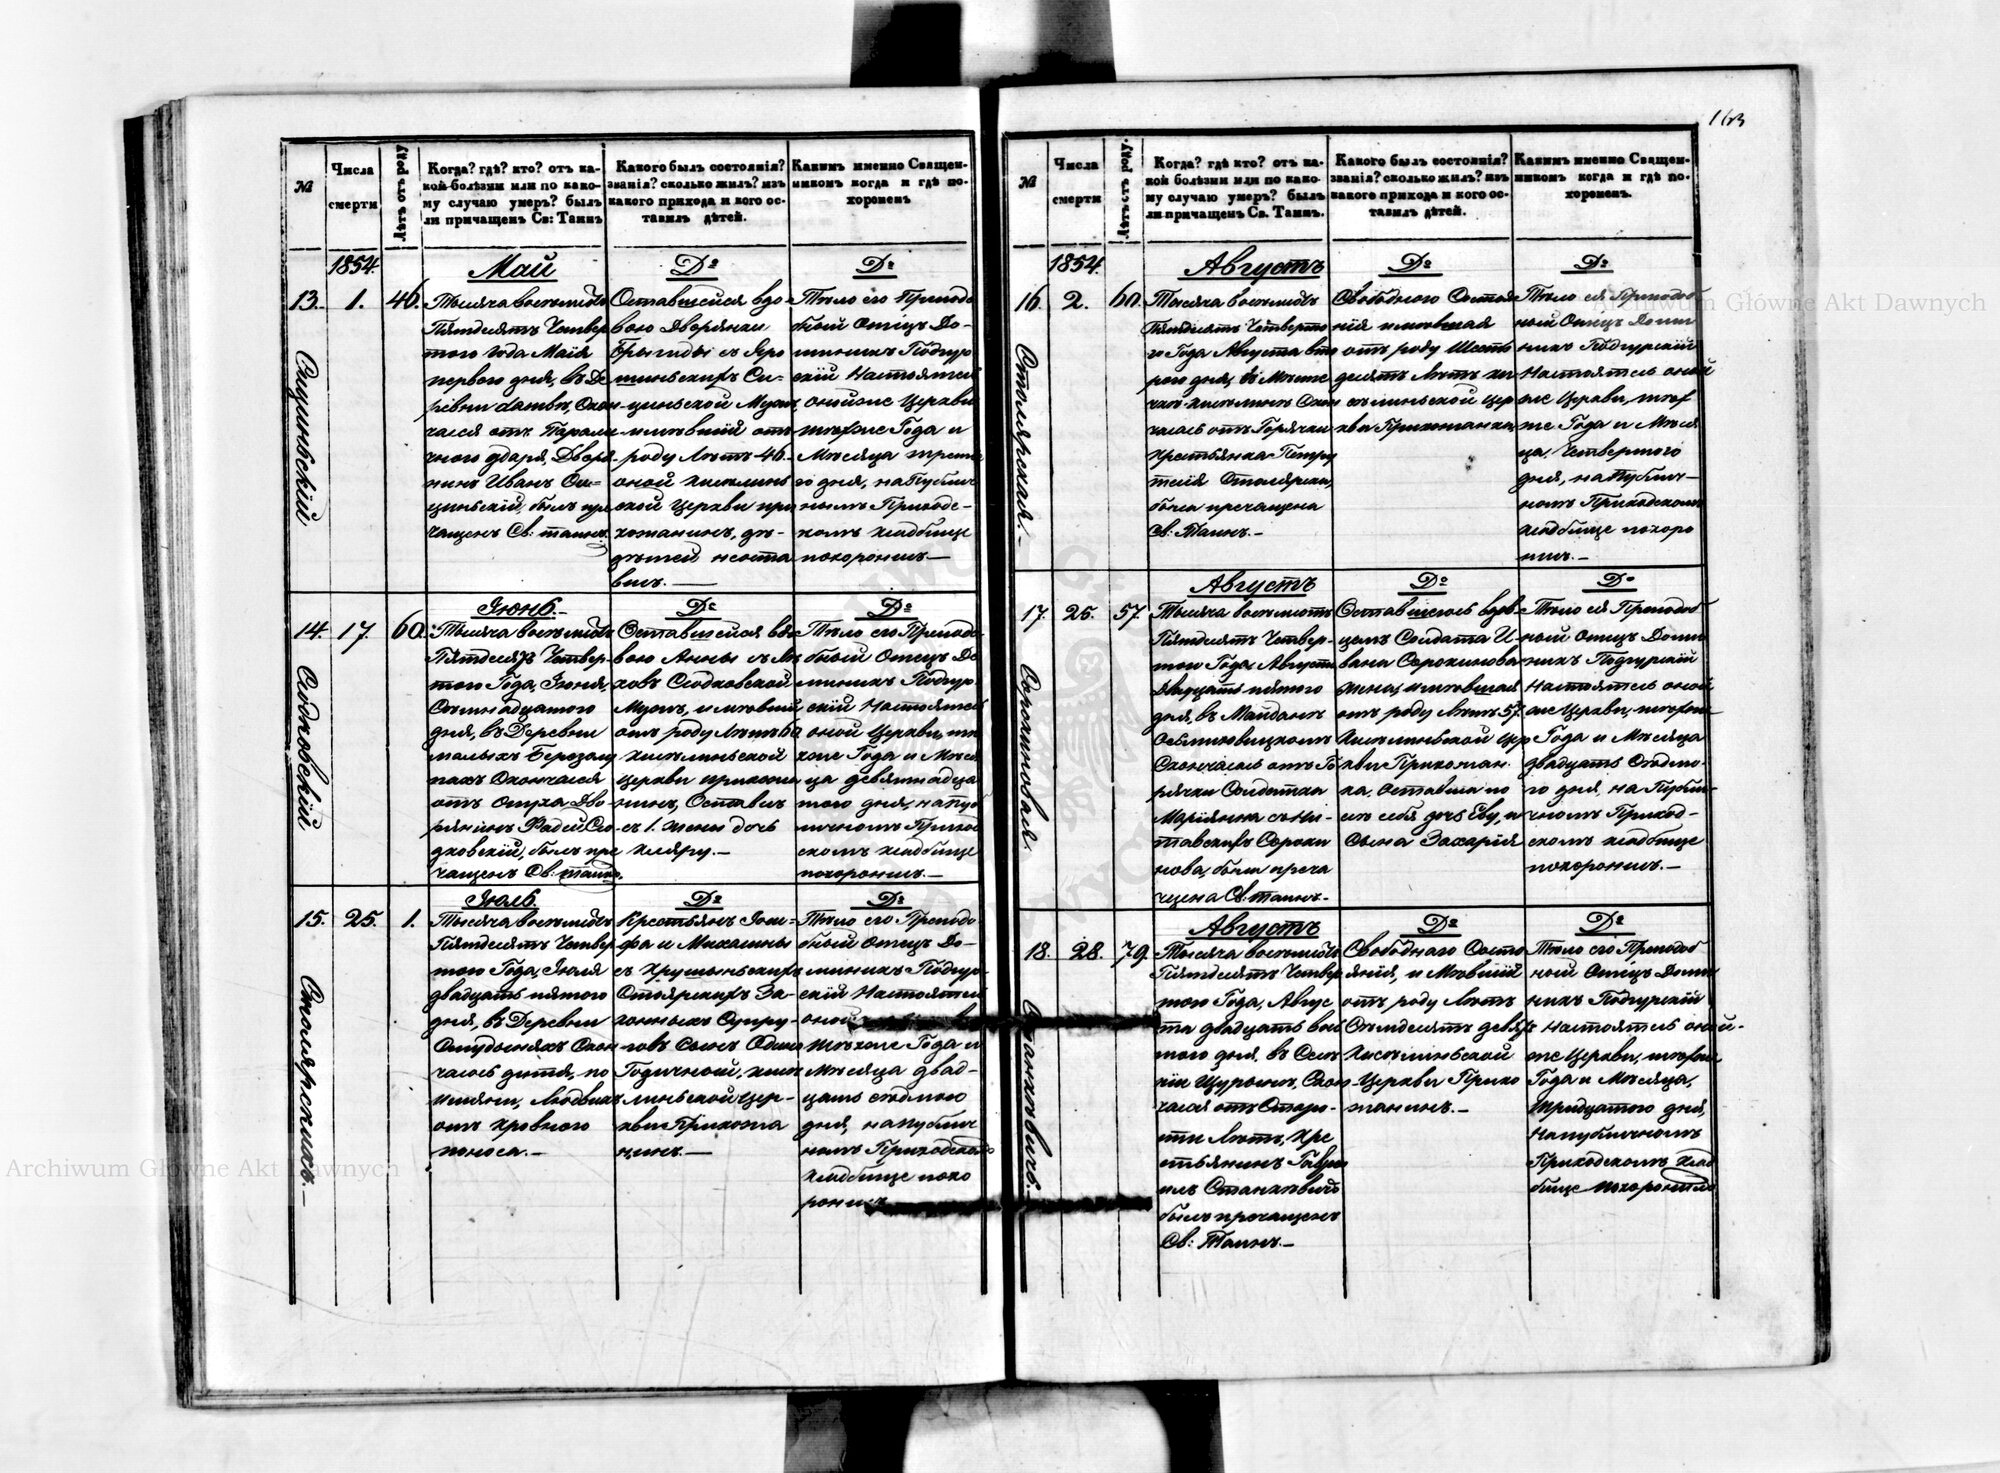 163
№
Числа
смерти
Лѣтъ отъ роду
Когда? гдѣ? кто? отъ ка-
кой болѣзни или по како-
му случаю умеръ? былъ
ли причащенъ Св: Таинъ
Какого былъ состоянія?
званія? сколько жилъ? изъ
какого прихода и кого ос-
тавилъ дѣтей.
Какимъ именно Священ-
никомъ когда и гдѣ по-
хороненъ
1854.
Май
Dº
Dº
13.
1.
46.
Сицинскій
Тысяча восемьсотъ
Пятдесятъ Четвер
того года Маія
перваго дня, въ Де
ревни
чался отъ Парали
чного удара, Дворя
нинъ Иванъ Си=
цинскій, былъ при
чащенъ Св: таинъ.
Оставшейся вдо
вою Дворянки
Бригиды съ Яро
шинскихъ Си=
цинской Мужъ,
имѣвшій отъ
роду Лѣтъ 46.
оной
ской Церкви при
хожанинъ, дѣ-
тей неоста
вилъ.—
Тѣло его Преподо
бный Отецъ До-
миникъ Подгур
скій Настоятель
оной же Церкви
тогоже Года и
Мѣсяца треть
го дня, на Публич
номъ Приходс-
комъ кладбище
похоронилъ—
Іюнь.—
Dº
Dº
14.
17.
60.
Сѣдковскій
Тысяча восемьсотъ
Пятдесятъ Четвер-
того Года, Іюня
Семнадцатого
дня, въ Деревни
малыхъ
Скончался
отъ Дво
рянинъ Фадей
дковскій, былъ при
чащенъ Св. таинъ.
Оставшейся вдо
вою Анны съ
Мужъ, имѣвшій
отъ роду Лѣтъ 60
Церкви прихожа
нинъ, Оставилъ
съ 1. жены дочь
Кляру.—
Тѣло его Преподо
бный Отецъ До
миникъ Подгур
скій Настоятель
оной Церкви, то
гоже Года и Мѣся
ца девятнадца
того дня, на пуб
личномъ Приход
скомъ кладбище
похоронилъ.—
Іюль.
Dº
Dº
15.
25.
1.
Столярскихъ.—
Тысяча восемьсотъ
Пятдесятъ Четвер
того Года, Іюля
двадцать пятого
дня, въ Деревни
Скон
чалось дитя, по
имяни, Людвикъ
отъ кровного
поноса.—
Крестьянъ Іоси=
фа и Михалины
съ
Столярскихъ За-
конныхъ Супру-
говъ Сынъ Одно
Годичной,
линьской Цер-
кви Прихожа
нинъ.—
Тѣло его Преподо
бный Отецъ До-
миникъ Подгур-
скій Настоятель
оной
тогоже Года и
Мѣсяца двад-
цать седмого
дня, на публич
номъ Приходском
кладбище похо
ронилъ
№
Числа
смерти
Лѣтъ отъ роду.
Когда? гдѣ кто? отъ ка-
кой болѣзни или по како-
му случаю умеръ? былъ
ли причащенъ Св. Таинъ.
Какого былъ состоянія?
званія? сколько жилъ? изъ
какого прихода и кого ос-
тавилъ дѣтей.
Какимъ именно Священ-
никомъ когда и гдѣ по-
хороненъ.
1854.
Августъ
Dº
Dº
16.
2.
60.
Столярская.—
Тысяча восемьсотъ
Пятдесятъ Четверто
го Года Августа вто
рого дня, въ Мѣсте
чкѣ Скон
чалась отъ Горячки
Крестьянка
Столярска,
была причащена
Св. Таинъ.—
Свободного Состоя
нія имѣвшая
отъ роду Шесть
десятъ Лѣтъ
Цер
кви Прихожанка
Тѣло ея Преподоб
ный Отецъ Доми
никъ Подгурскій
Настоятель оной
же Церкви, тогоʼ
же Года и Мѣся
ца, Четвертого
дня, на Публич-
номъ Приходскомъ
кладбище похоро
нилъ.—
Августъ
Dº
Dº
17.
25.
57.
Сорохиновая.
Тысяча восемьсотъ
Пятдесятъ Четвер-
того Года, Августа
двадцать пятого
дня, въ Майданѣ
Скончалась отъ Го
рячки Солдатка
Маріянна
Сорохи
нова, была прича
щена Св: таинъ.—
Оставшегось вдов-
цемъ Солдата И
вана Сорохинова
жена, имѣвшая
отъ роду Лѣтъ 57.
Цер
кви Прихожан-
ка, оставила по
сьлѣ себя дочь Еву, и
Сына Захарія
Тѣло ея Преподоб
ный Отецъ Доми
никъ Подгурскій
Настоятель оной
же Церкви, тогоже
Года и Мѣсяца
двадцать Седмо-
го дня, на Публи-
чномъ Приход-
скомъ кладбище
похоронилъ.—
Августъ
Dº
Dº
18.
28.
79.
Станкевичъ.—
Тысяча восемьсотъ
Пятдесятъ Четвер
того Года, Авгус
та двадцать вось
мого дня, въ
Скон
чался отъ Старо-
сти Лѣтъ, Кре
стьянинъ Гаври
илъ Станкѣвичъ
былъ причащенъ
Св: Таинъ.—
Свободного Состо
янія, и Мѣвшій
отъ роду Лѣтъ
Семдесятъ девять
Церкви Прихо
жанинъ.—
Тѣло его Преподоб
ный Отецъ Доми
никъ Подгурскій
Настоятель оной-
же Церкви, тогоже
Года и Мѣсяца,
Тридцатого дня,
На публичномъ
Приходскомъ клад
бище похоронилъ
Archiwum Główne Akt Dawnych
Archiwum Główne Akt Dawnych